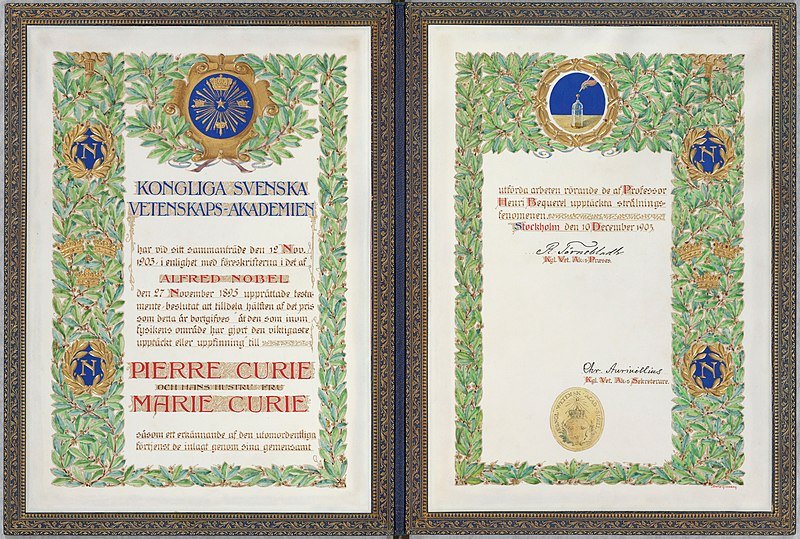 N
N
KONGLIGA SVENSKA
VETENSKAPS-AKADEMIEN
har vid sitt sammanträde den 12 Nov.
1903, i enlighet med föreskrifterna i det af
ALFRED NOBEL
den 27 November 1895 upprättade testa-
mente, beslutat att tilldela hälften af det pris
som detta år bortgifves åt den som inom
fysikens område har gjort den viktigaste
upptäckt eller uppfinning till
PIERRE CURIE
OCH HANS HUSTRU FRU
MARIE CURIE
såsom ett erkännande af den utomordentliga
förtjenst de inlagt genom sina gemensamt
N
N
utförda arbeten rörande de af Professor
Henri Bequerel upptäckta strålnings-
fenomenen
Stockholm den 10 December 1903.
R Törnebladh
Kgl. Vet. Ak:s Præses.
Chr. Aurivillius
Kgl. Vet. Ak:s Sekreterare.